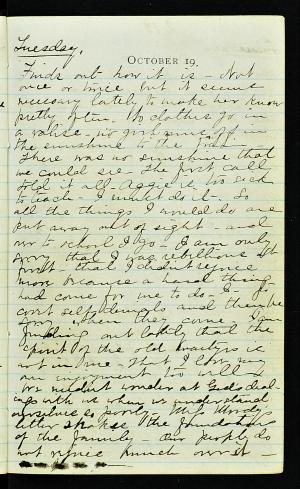 Tuesday,
OCTOBER 19.
Finds out how it is - Not
once or twice but it seems
necessary lately to make her know
pretty often. No clothes go in
a valise - no gun runs off in
the sunshine to the
There was no sunshine that
we could see - The first call
told it all. Aggie is too sick
to teach - I must do it. So
all the things I would do are
put away out of sight - and
over to school I go - I am only
sorry that I was rebellious at
first - that I didn't rejoice
more because a hard thing
had come for me to do - I
covet self denials and then be
sorry when they come. I am
finding out lately that the
spirit of the old martyrs is
not in me - that I love my
own enjoyment too well &
for wonder at God's deal-
ings with us when we understand
ourselves so poorly - Mrs
letter shakes the foundations
of the family - Our people do
not rejoice much over it -